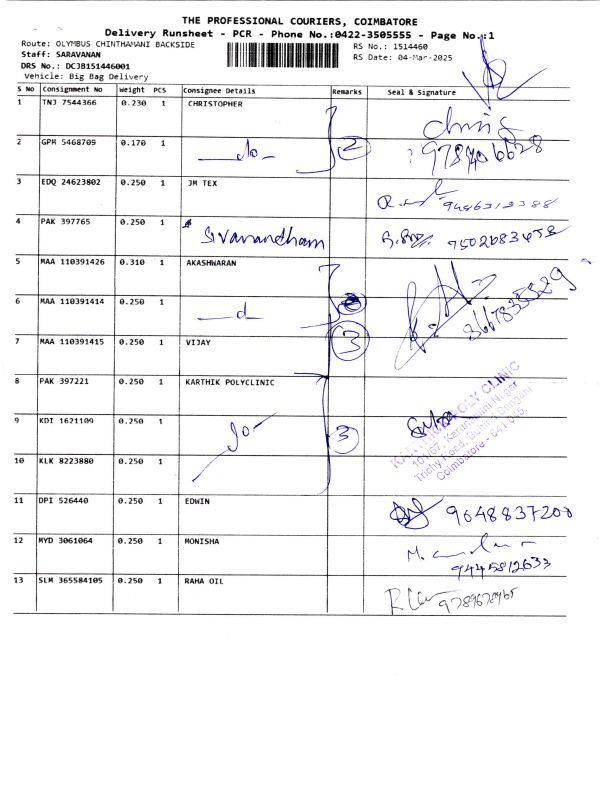 THE PROFESSIONAL COURIERS, COIMBATORE
Delivery Runsheet - PCR - Phone No.:0422-3505555 - Page No.:1
Route: OLYMBUS CHINTHAMANI BACKSIDE
RS No.: 1514460
Staff: SARAVANAN
RS Date: 04-Mar-2025
DRS No.: DCJB151446001
Vehicle: Big Bag Delivery
S No Consignment No Weight PCS Consignee Details Remarks Seal & Signature
1 TNJ 7544366 0.230 1 CHRISTOPHER
chris
2 GPM 5468709 0.170 1 do 2
3 EDQ 24623802 0.250 1 JM TEX
4 PAK 397765 0.250 1 Sivanandham
5 MAA 110391426 0.310 1 AKASHWARAN
6 MAA 110391414 0.250 1
7 MAA 110391415 0.250 1 VIJAY 3
8 PAK 397221 0.250 1 KARTHIK POLYCLINIC
9 KDI 1621109 0.250 1 do 3
10 KLK 8223880 0.250 1
Coimbatore - 641
11 DPI 526440 0.250 1 EDWIN 9648837200
12 MYD 3061064 0.250 1 MONISHA
9445812633
13 SLM 365584105 0.250 1 RAHA OIL